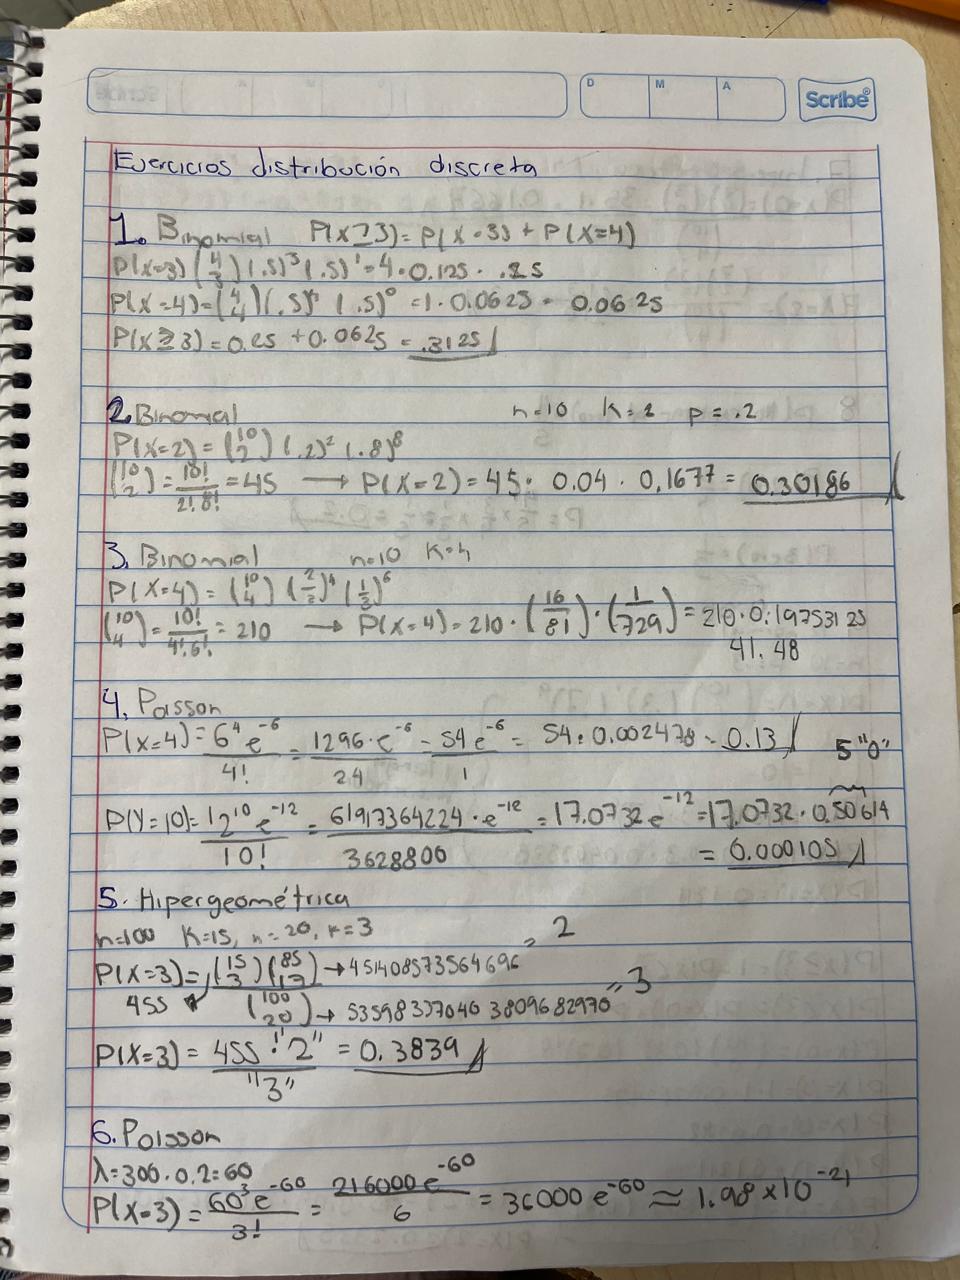 D M A
Scribe®
Ejercicios distribución discreta
1. Binomial P(X≥3)=P(X=3)+P(X=4)
P(X=3)(4 3)(.5)³(.5)¹=4·0.125=.25
P(X=4)=(4 4)(.5)⁴(.5)⁰=1·0.0625=0.0625
P(X≥3)=0.25+0.0625=.3125
2. Binomial n=10 k=2 p=.2
P(X=2)=(10 2)(.2)²(.8)⁸
(10 2)=10!/2!·8!=45 → P(X=2)=45·0.04·0.1677=0.30186
3. Binomial n=10 k=4
P(X=4)=(10 4)(2/3)⁴(1/3)⁶
(10 4)=10!/4!·6!=210 → P(X=4)=210·(16/81)·(1/729)=210·0.19753125
41.48
4. Poisson
P(X=4)=6⁴e⁻⁶/4!=1296·e⁻⁶/24=54e⁻⁶/1=54·0.002478=0.13 5"0"
P(Y=10)=12¹⁰e⁻¹²/10!=61917364224·e⁻¹²/3628800=17.0732e⁻¹²=17.0732·0.50614
=0.000105
5. Hipergeométrica
n=100 K=15, n=20, k=3
P(X=3)=(15 3)(85 17)/(100 20) →451408573564696 = 2
455 →535983370403809682970 = 3
P(X=3)=455·"2"/"3"=0.3839
6. Poisson
λ=300·0.2=60
P(X=3)=60³e⁻⁶⁰/3!=216000e⁻⁶⁰/6=36000e⁻⁶⁰≈1.98×10⁻²¹